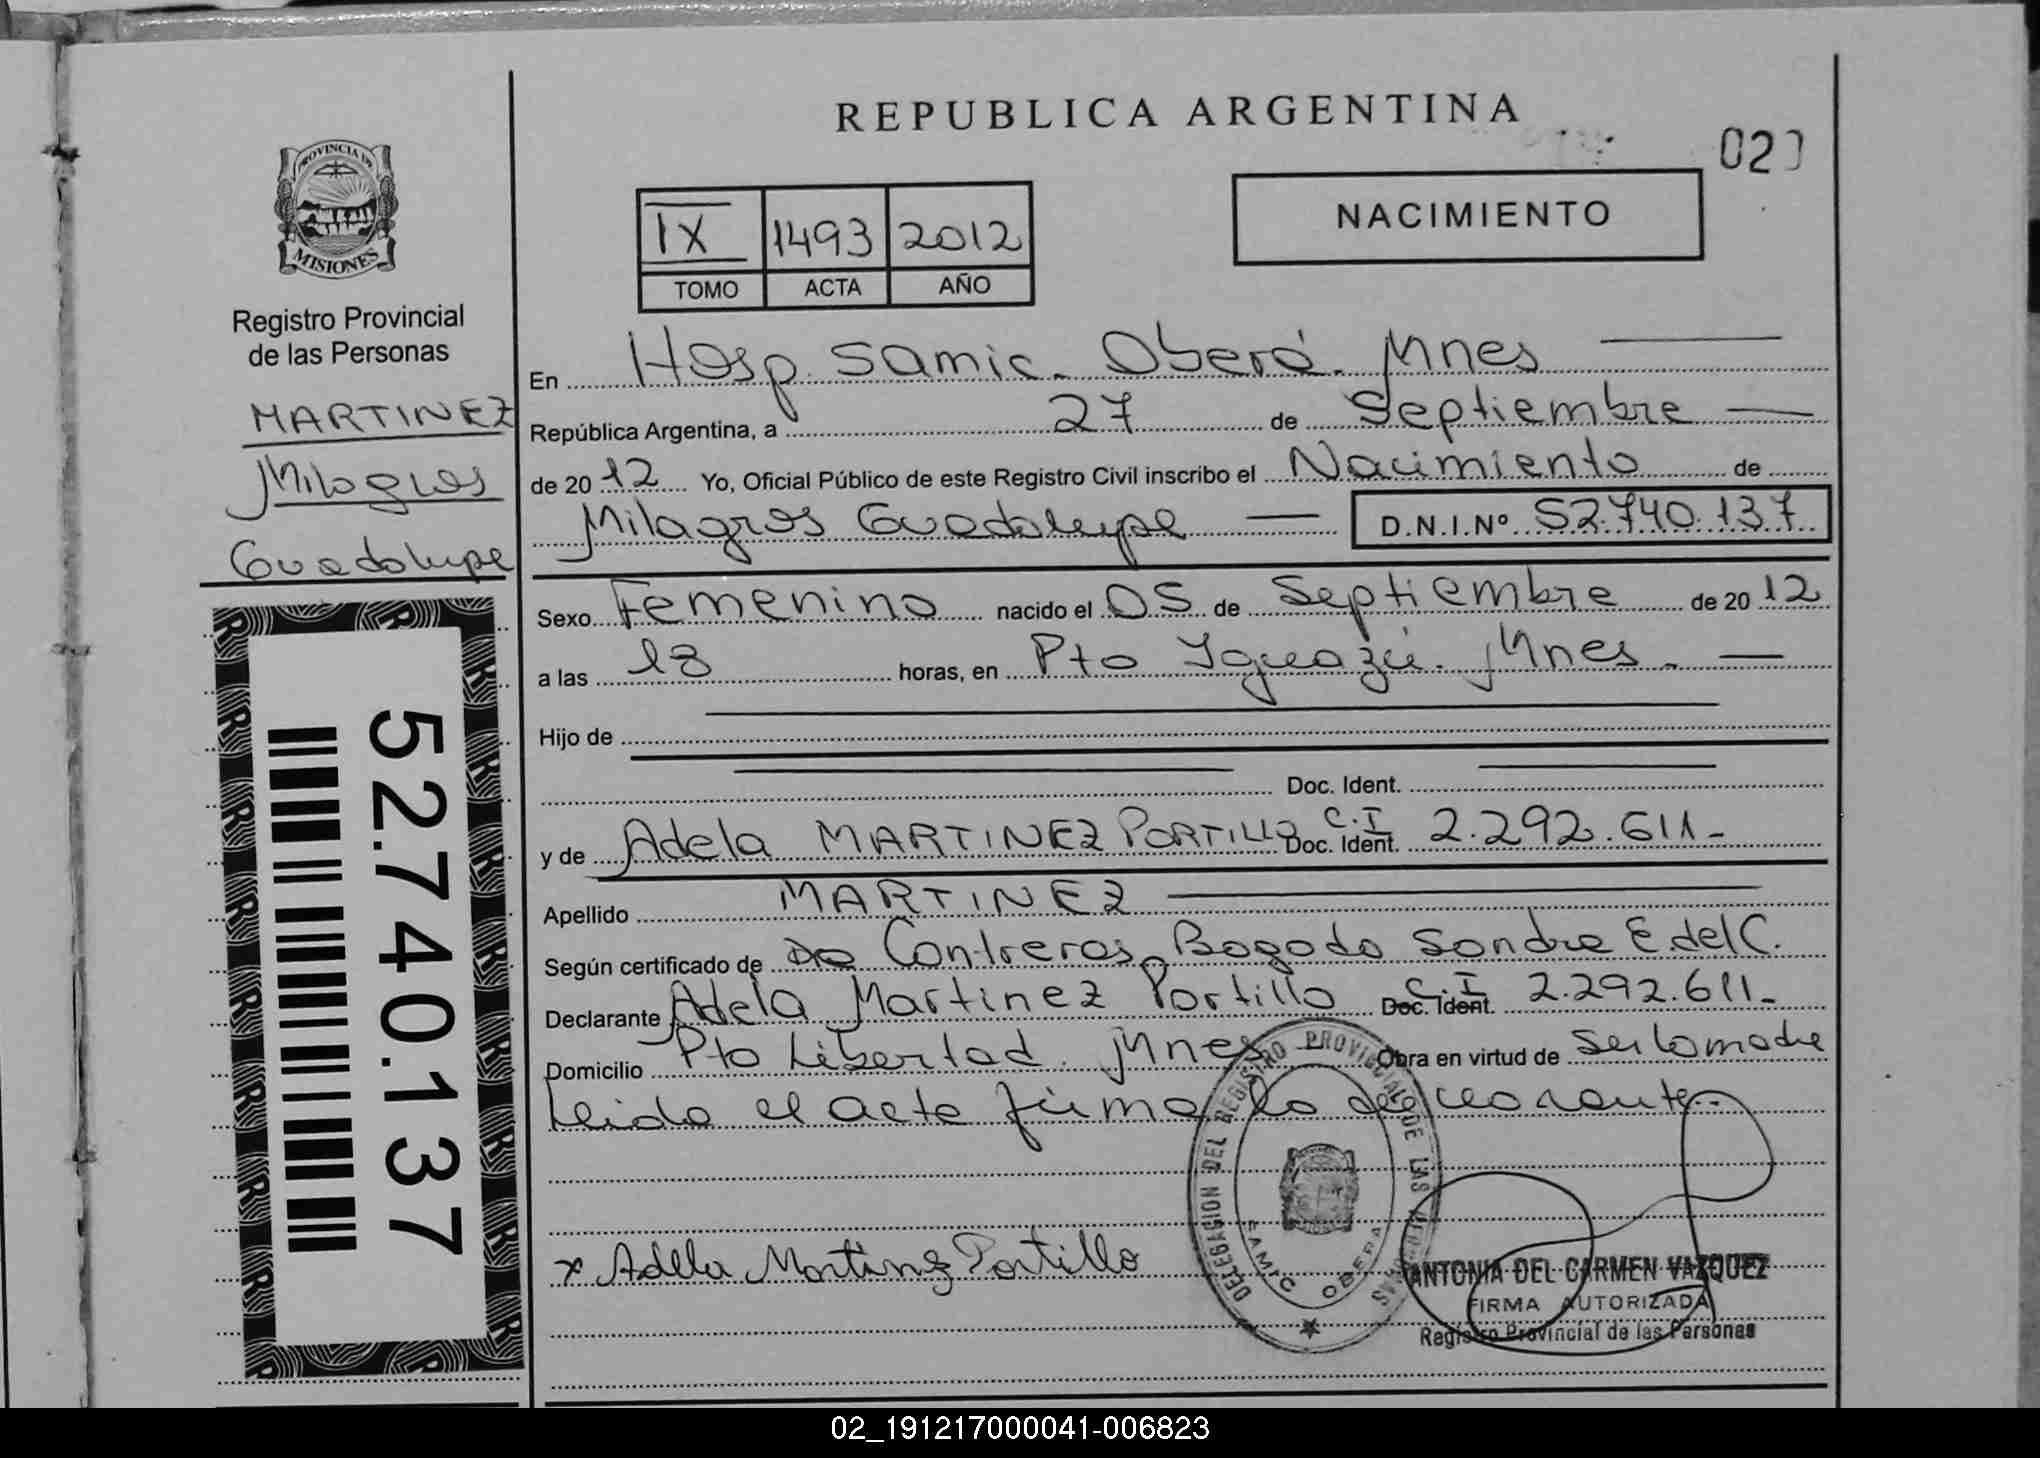 REPUBLICA ARGENTINA
PROVINCIA DE
MISIONES
Registro Provincial
de las Personas
MARTINEZ
Milagros
Guadalupe
52.740.137
02
IX 1493 2012
TOMO ACTA AÑO
NACIMIENTO
En Hosp. Samic. Oberá. Mnes
República Argentina, a 27 de Septiembre
de 2012 Yo, Oficial Público de este Registro Civil inscribo el Nacimiento de
Milagros Guadalupe D.N.I.Nº 52.740.137
Sexo Femenino nacido el 05 de Septiembre de 2012
a las 18 horas, en Pto Iguazú. Mnes.
Hijo de
Doc. Ident.
y de Adela MARTINEZ PORTILLO C.I Doc. Ident. 2.292.611-
Apellido MARTINEZ
Según certificado de Contreras Bogado Sandra E. del C.
Declarante Adela Martinez Portillo C.I Doc. Ident. 2.292.611-
Domicilio Pto Libertad. Mnes Obra en virtud de Ser la madre
Leida el acta firma la declarante.
x Adela Martinez Portillo
DELEGACION DEL REGISTRO PROVINCIAL DE LAS PERSONAS
SAMIC OBERA
ANTONIA DEL CARMEN VAZQUEZ
FIRMA AUTORIZADA
Registro Provincial de las Personas
02_191217000041-006823